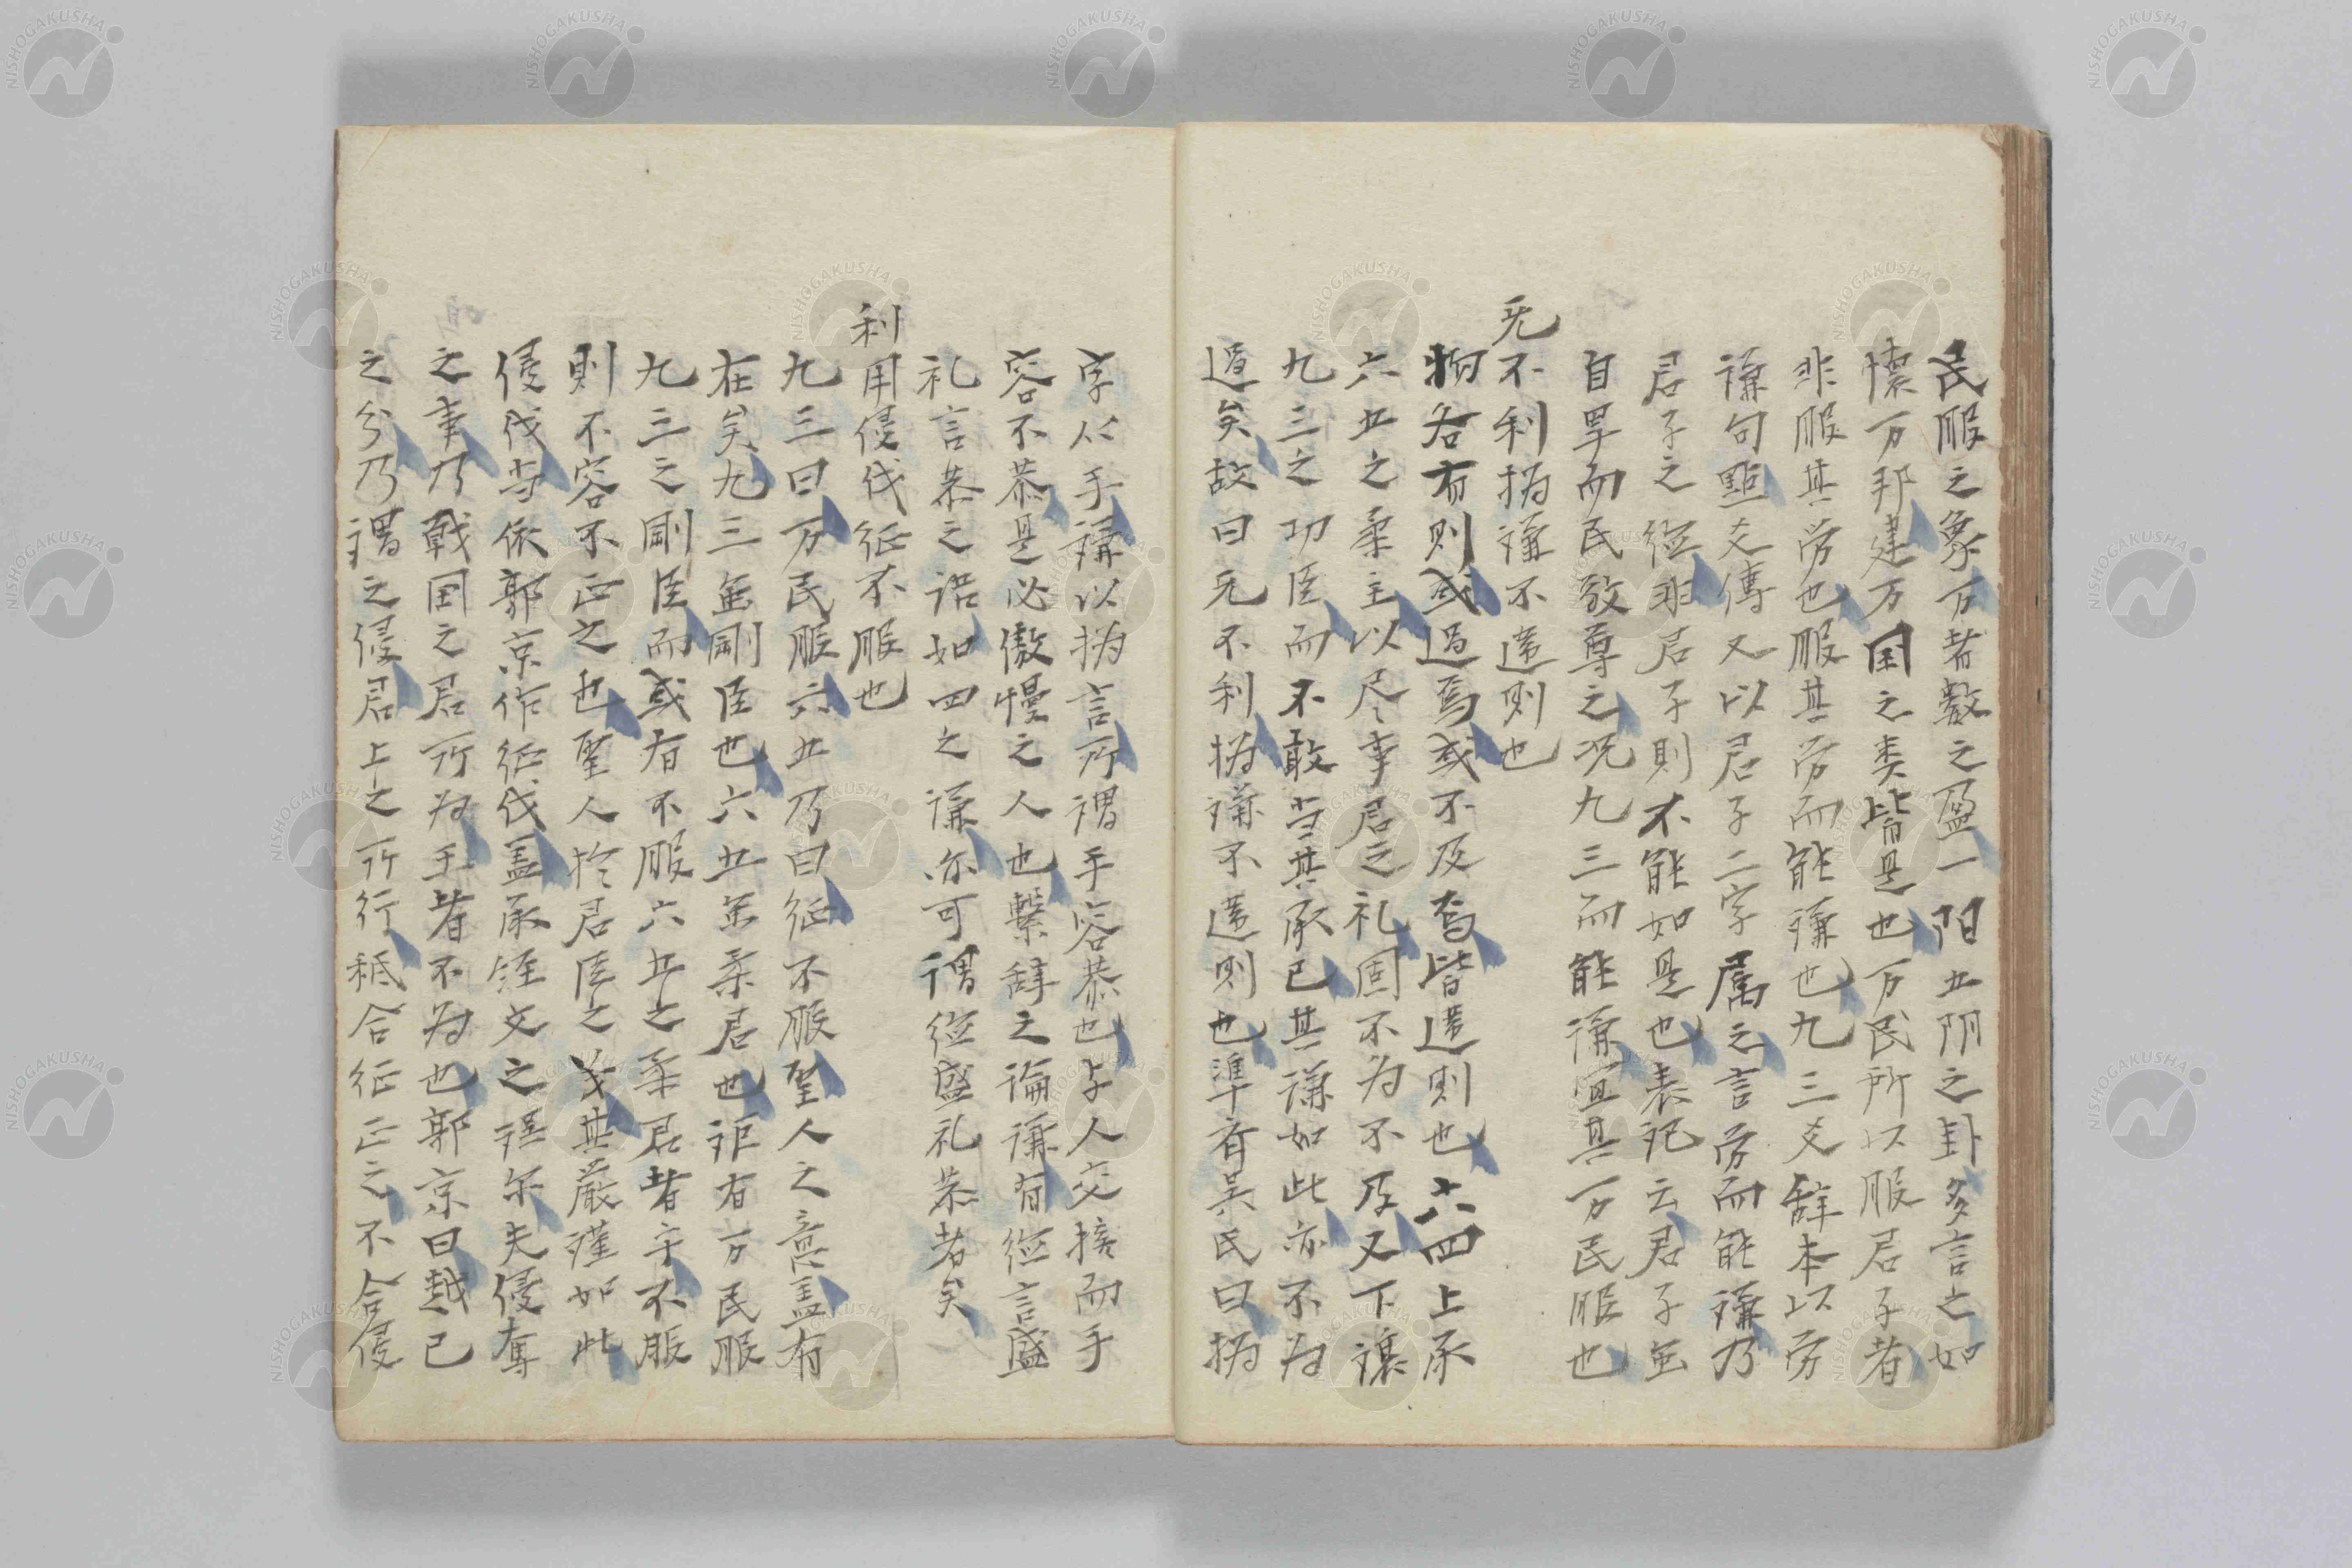 民服之象万者数之盈一阳五阴之卦多言之如
懐万邦建万国之类皆是也万民所以服君子者
非服其労也服其労而能謙也九三爻辞本以労
謙句點爻傳又以君子二字属之言労而能謙乃
君子之従非君子則不能如是也表记云君子虽
自卑而民敬尊之况九三而能謙宜其万民服也
无不利撝謙不違則也
物各有則或過焉或不及焉皆違則也六四上承
六五之柔主以尽事君之礼固不为不及又下讓
九三之功臣而不敢当其承已其謙如此亦不为
過矣故曰无不利撝謙不違則也準斎吴氏曰撝
字从手謙以撝言所謂手容恭也与人交接而手
容不恭是必傲慢之人也繋辞之論謙有従言盛
礼言恭之语如四之谦亦可谓従盛礼恭者矣
利用侵伐征不服也
九三曰万民服六五乃曰征不服聖人之意盖有
在矣九三虽剛臣也六五虽柔君也讵有万民服
九三之剛臣而或有不服六五之柔君者乎不服
則不容不正之也聖人於君臣之义其厳谨如此
侵伐当依郭京作征伐盖承经文之误尔夫侵奪
之事乃戦国之君所为王者不为也郭京曰越己
之分乃謂之侵君上之所行秖合征正之不合侵
NISHOGAKUSHA